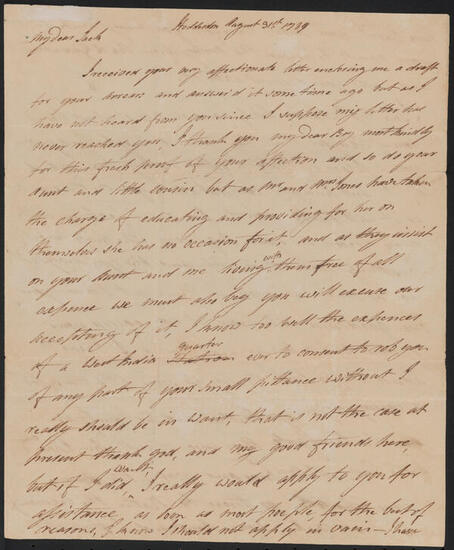 August 31st 1789
My dear Jack
I received your very affectionate letter enclosing me a draft
for your arrears and answer'd it some time ago but as I
have not heard from you since I suppose my letter has
never reached you, I thank you my dear Boy most kindly
for this fresh proof of your affection and so do your
Aunt and little cousin but as Mr and Mrs Jones have taken
the charge of educating and providing for her on
themselves she has no occasion for it, and as they insist
on your Aunt and me living with them free of all
expence we must also beg you will excuse our
accepting of it, I know too well the expences
of a West India Station quarter ever to consent to rob you
of any part of your small pittance without I
really should be in want, that is not the case at
present thank god, and my good friends here,
but if I did want I really would apply to you for
assistance, as soon as most people for the best of
reasons, I know I should not apply in vain — I have